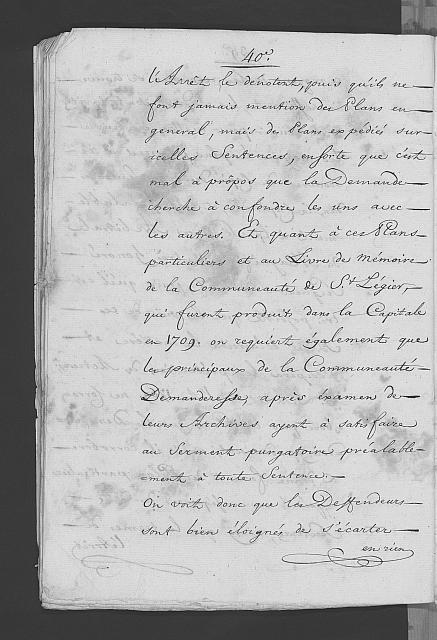 40.
l'Arrêt le dénotent, puis qu'ils ne
font jamais mention des Plans en
general, mais des Plans expediés sur
icelles Sentences, ensorte que c'est
mal à propos que la Demande
cherche à confondre les uns avec
les autres. Et quant à ces Plans
particuliers et au Livre de mémoire
de la Communeauté de St. Légier,
qui furent produits dans la Capitale
en 1709. on requiert également que
les principaux de la Communeauté
Demanderesse, après éxamen de
leurs Archives ayent à satisfaire
au Serment purgatoire préalable=
=ment à toute Sentence.
On voit donc que les Deffendeurs
sont bien éloignés de s'écarter
en rien